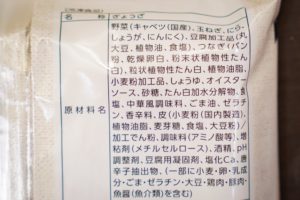 (冷凍食品)
名称 ぎょうざ
原材料名
野菜(キャベツ(国産)、玉ねぎ、にら、
しょうが、にんにく)、豆腐加工品(丸
大豆、植物油、食塩)、つなぎ(パン
粉、乾燥卵白、粉末状植物性たん
白)、粒状植物性たん白、植物油脂、
小麦粉加工品、しょうゆ、オイスター
ソース、砂糖、たん白加水分解物、食
塩、中華風調味料、ごま油、ゼラチ
ン、香辛料、皮(小麦粉(国内製造)、
植物油脂、麦芽糖、食塩、大豆粉)/
加工でん粉、調味料(アミノ酸等)、増
粘剤(メチルセルロース)、酒精、pH
調整剤、豆腐用凝固剤、塩化Ca、唐
辛子抽出物、(一部に小麦・卵・乳成
分・ごま・ゼラチン・大豆・鶏肉・豚肉・
魚醤(魚介類)を含む)